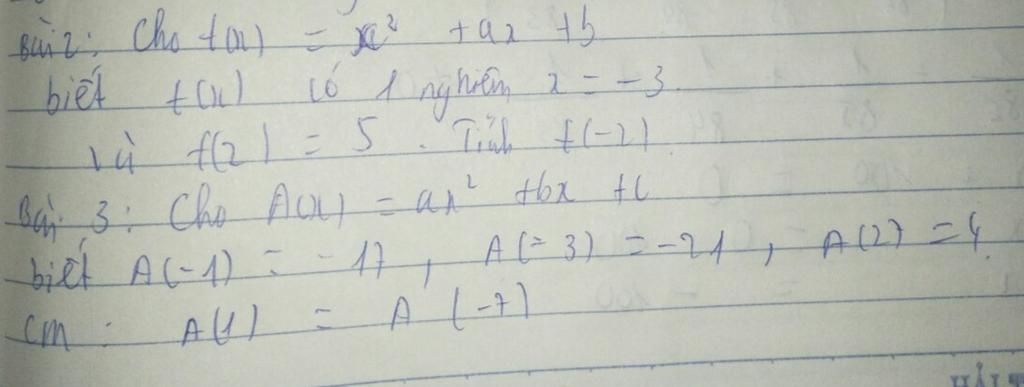 Bài 2: Cho f(x) = x² + ax + b
biết f(x) có 1 nghiệm x = -3.
và f(2) = 5. Tính f(-2)
Bài 3: Cho A(x) = ax² + bx + c
biết A(-1) = -17, A(-3) = -21, A(2) = 4.
cm: A(1) = A(-7)